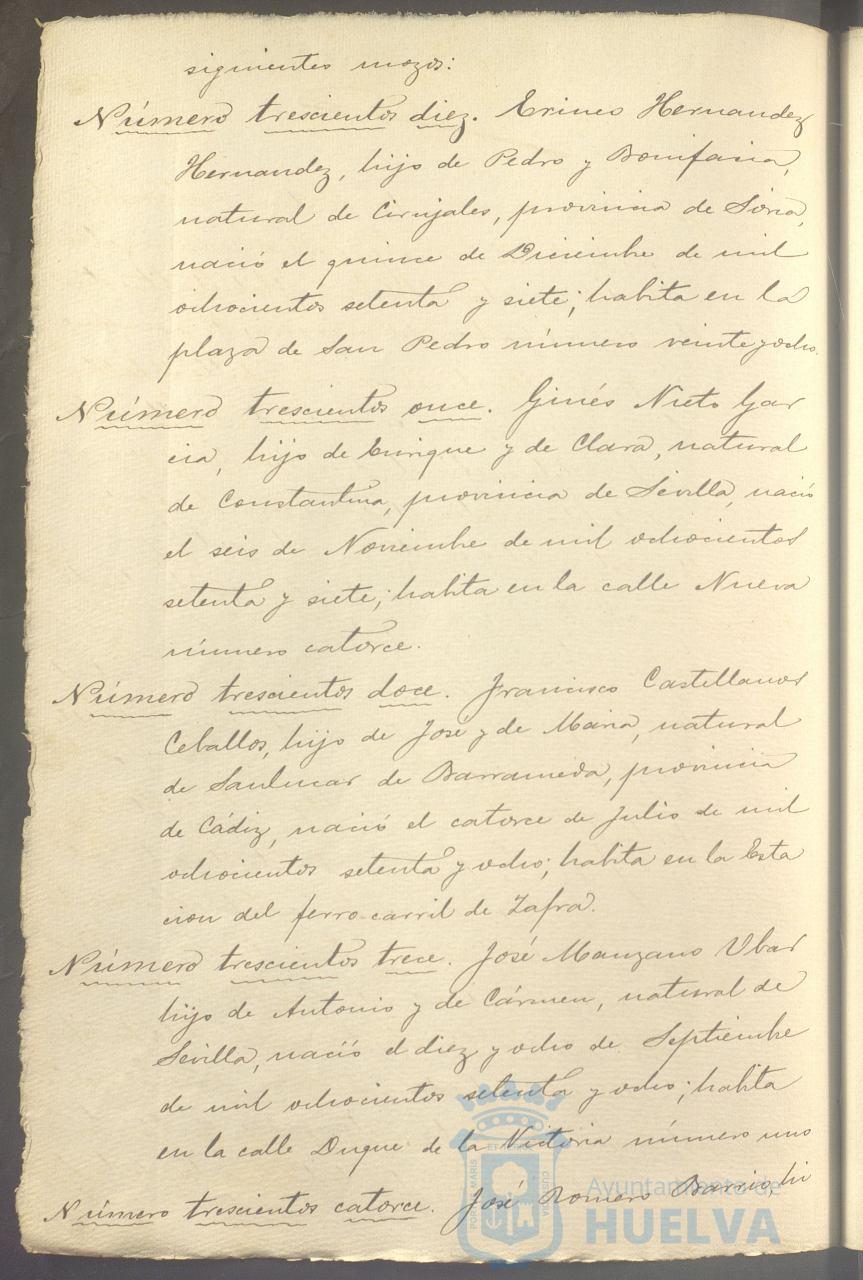 siguientes mozos:
Número trescientos diez. Erineo Hernandez
Hernandez, hijo de Pedro y Bonifacia,
natural de Cirujales, provincia de Soria,
nació el quince de Diciembre de mil
ochocientos setenta y siete; habita en la
plaza de San Pedro número veinte y ocho.
Número trescientos once. Ginés Nieto Gar
cia, hijo de Enrique y de Clara, natural
de Constantina, provincia de Sevilla, nació
el seis de Noviembre de mil ochocientos
setenta y siete; habita en la calle Nueva
número catorce.
Número trescientos doce. Francisco Castellanos
Ceballos, hijo de José y de Maria, natural
de Sanlucar de Barrameda, provincia
de Cádiz, nació el catorce de Julio de mil
ochocientos setenta y ocho; habita en la Esta
cion del ferro-carril de Zafra.
Número trescientos trece. José Manzano Vbar
hijo de Antonio y de Cármen, natural de
Sevilla, nació el diez y ocho de Septiembre
de mil ochocientos setenta y ocho; habita
en la calle Duque de la Victoria número uno
Número trescientos catorce. José Romero Barrio, hi
Ayuntamiento de
HUELVA